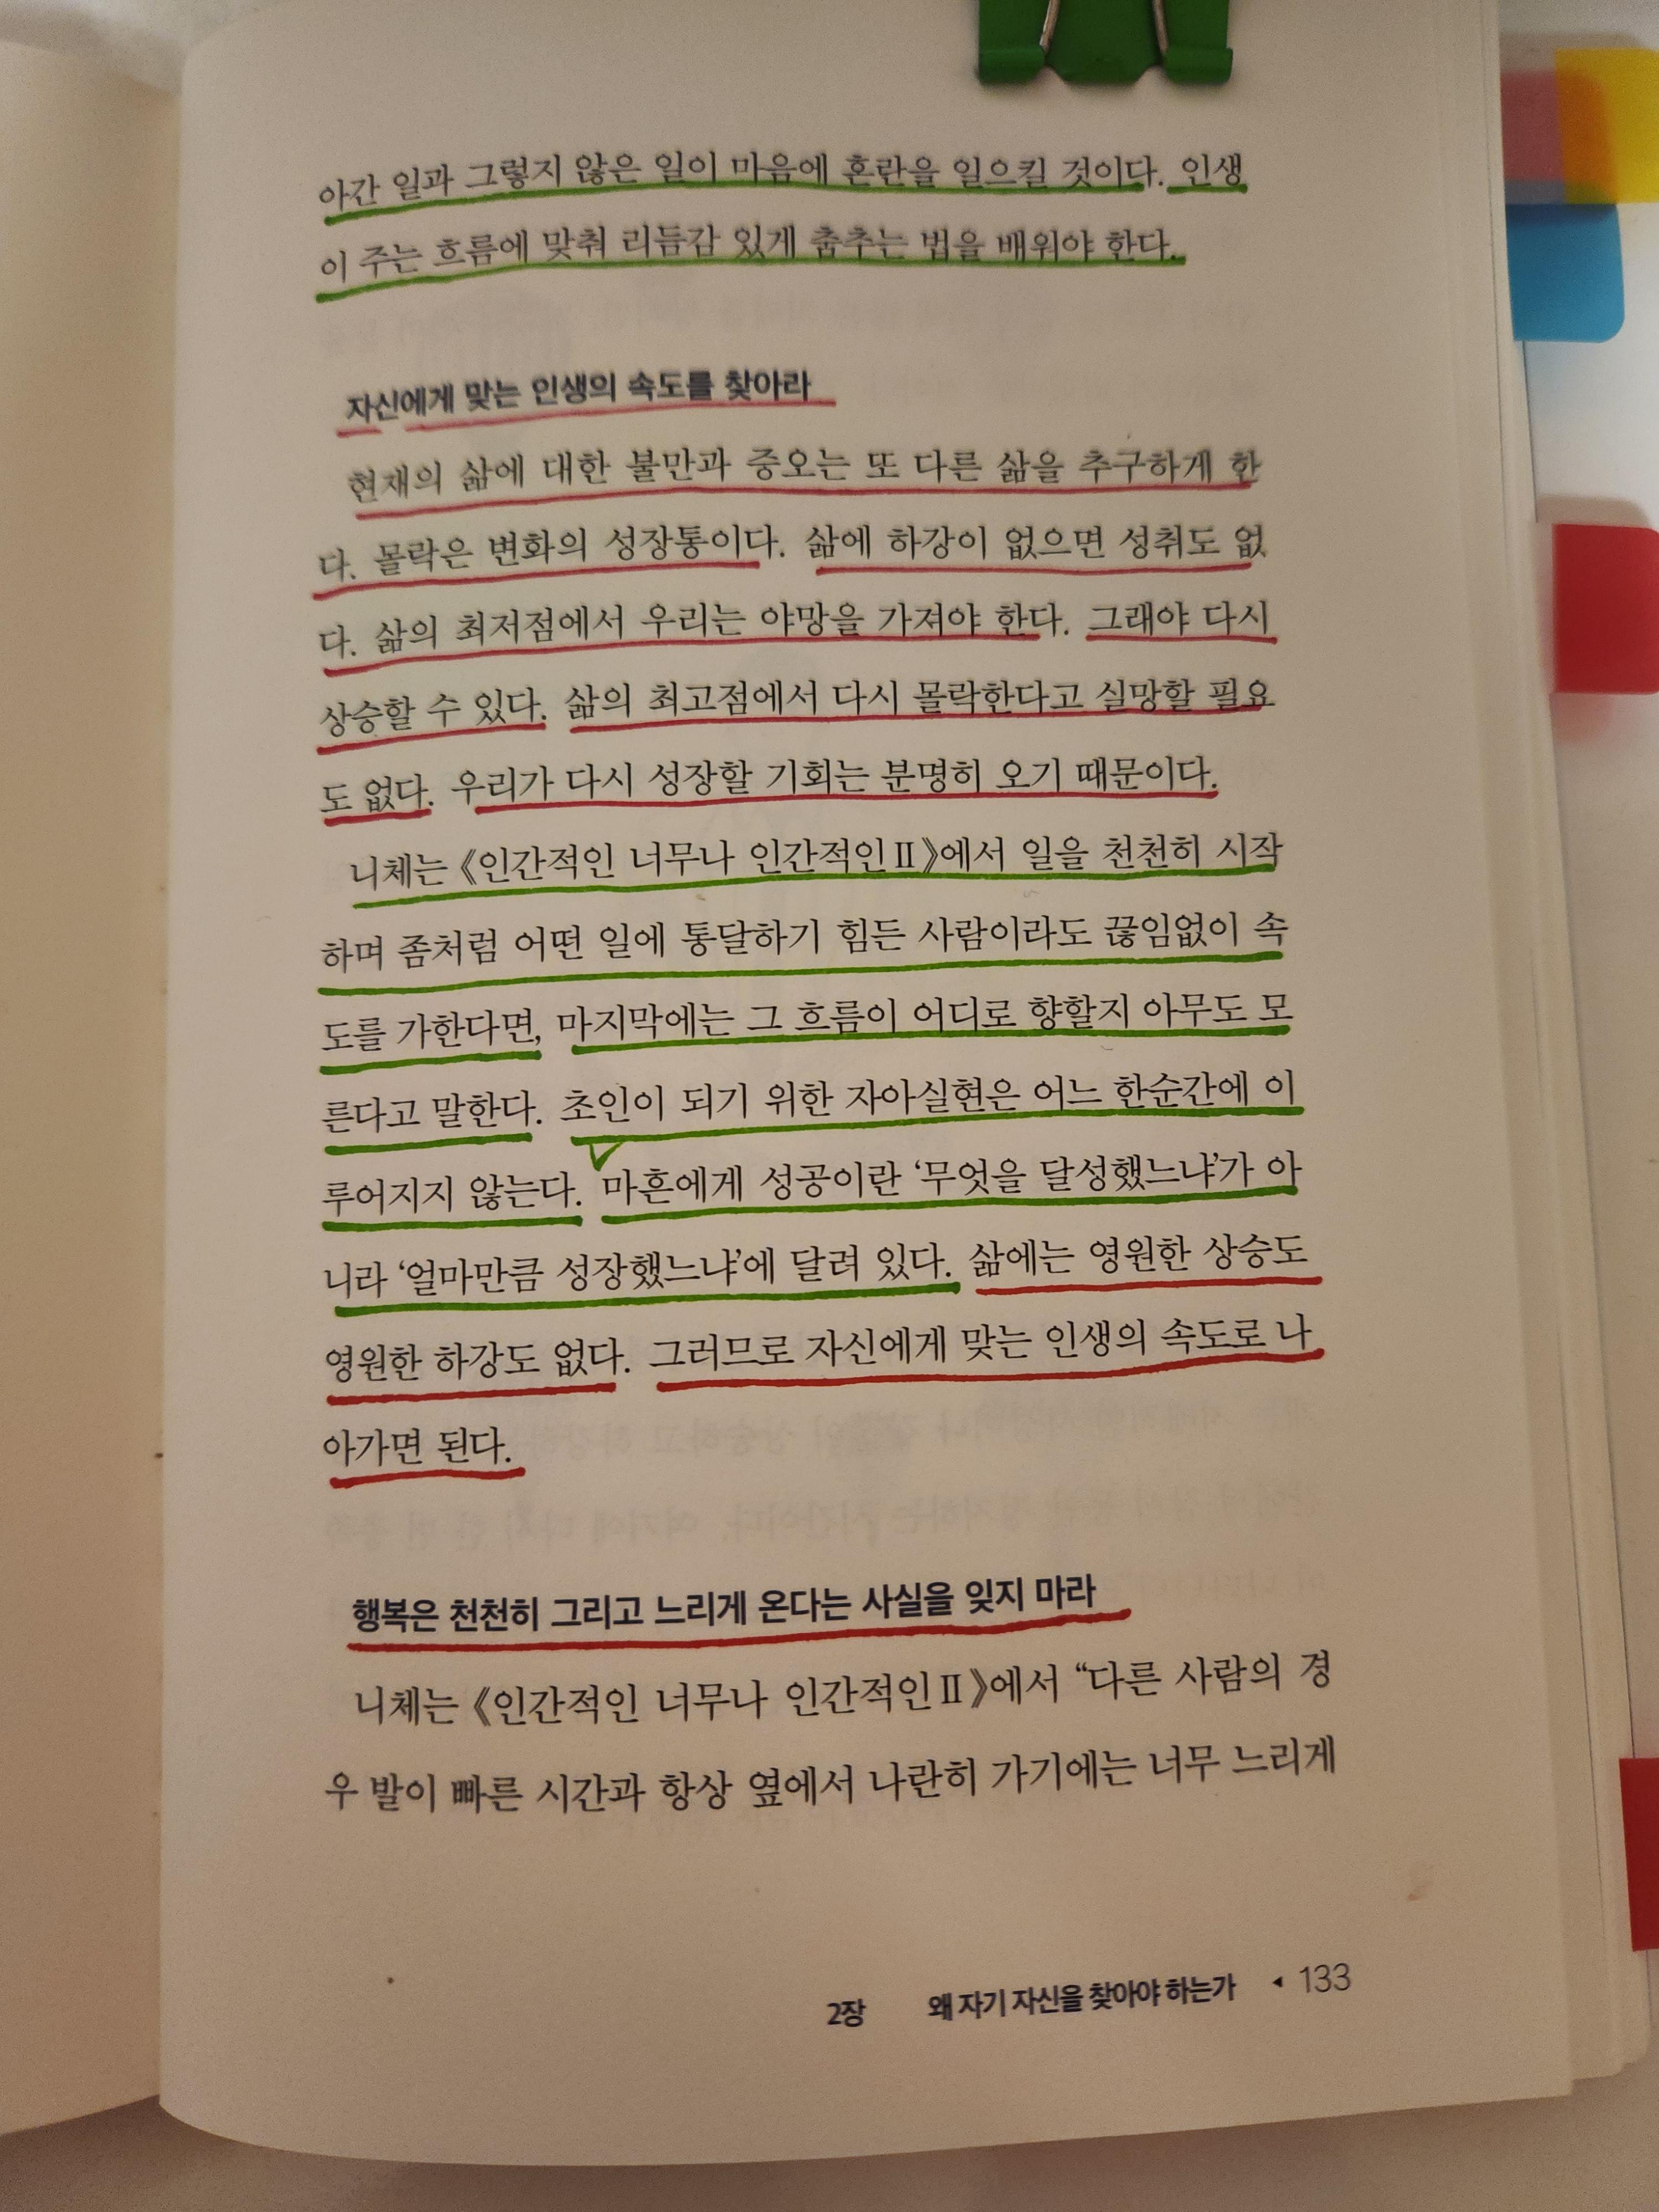 아간 일과 그렇지 않은 일이 마음에 혼란을 일으킬 것이다. 인생
이 주는 흐름에 맞춰 리듬감 있게 춤추는 법을 배워야 한다.
자신에게 맞는 인생의 속도를 찾아라
현재의 삶에 대한 불만과 증오는 또 다른 삶을 추구하게 한
다. 몰락은 변화의 성장통이다. 삶에 하강이 없으면 성취도 없
다. 삶의 최저점에서 우리는 야망을 가져야 한다. 그래야 다시
상승할 수 있다. 삶의 최고점에서 다시 몰락한다고 실망할 필요
도 없다. 우리가 다시 성장할 기회는 분명히 오기 때문이다.
니체는 《인간적인 너무나 인간적인Ⅱ》에서 일을 천천히 시작
하며 좀처럼 어떤 일에 통달하기 힘든 사람이라도 끊임없이 속
도를 가한다면, 마지막에는 그 흐름이 어디로 향할지 아무도 모
른다고 말한다. 초인이 되기 위한 자아실현은 어느 한순간에 이
루어지지 않는다. 마흔에게 성공이란 ‘무엇을 달성했느냐’가 아
니라 ‘얼마만큼 성장했느냐’에 달려 있다. 삶에는 영원한 상승도
영원한 하강도 없다. 그러므로 자신에게 맞는 인생의 속도로 나
아가면 된다.
행복은 천천히 그리고 느리게 온다는 사실을 잊지 마라
니체는 《인간적인 너무나 인간적인Ⅱ》에서 “다른 사람의 경
우 발이 빠른 시간과 항상 옆에서 나란히 가기에는 너무 느리게
2장 왜 자기 자신을 찾아야 하는가 ◂ 133